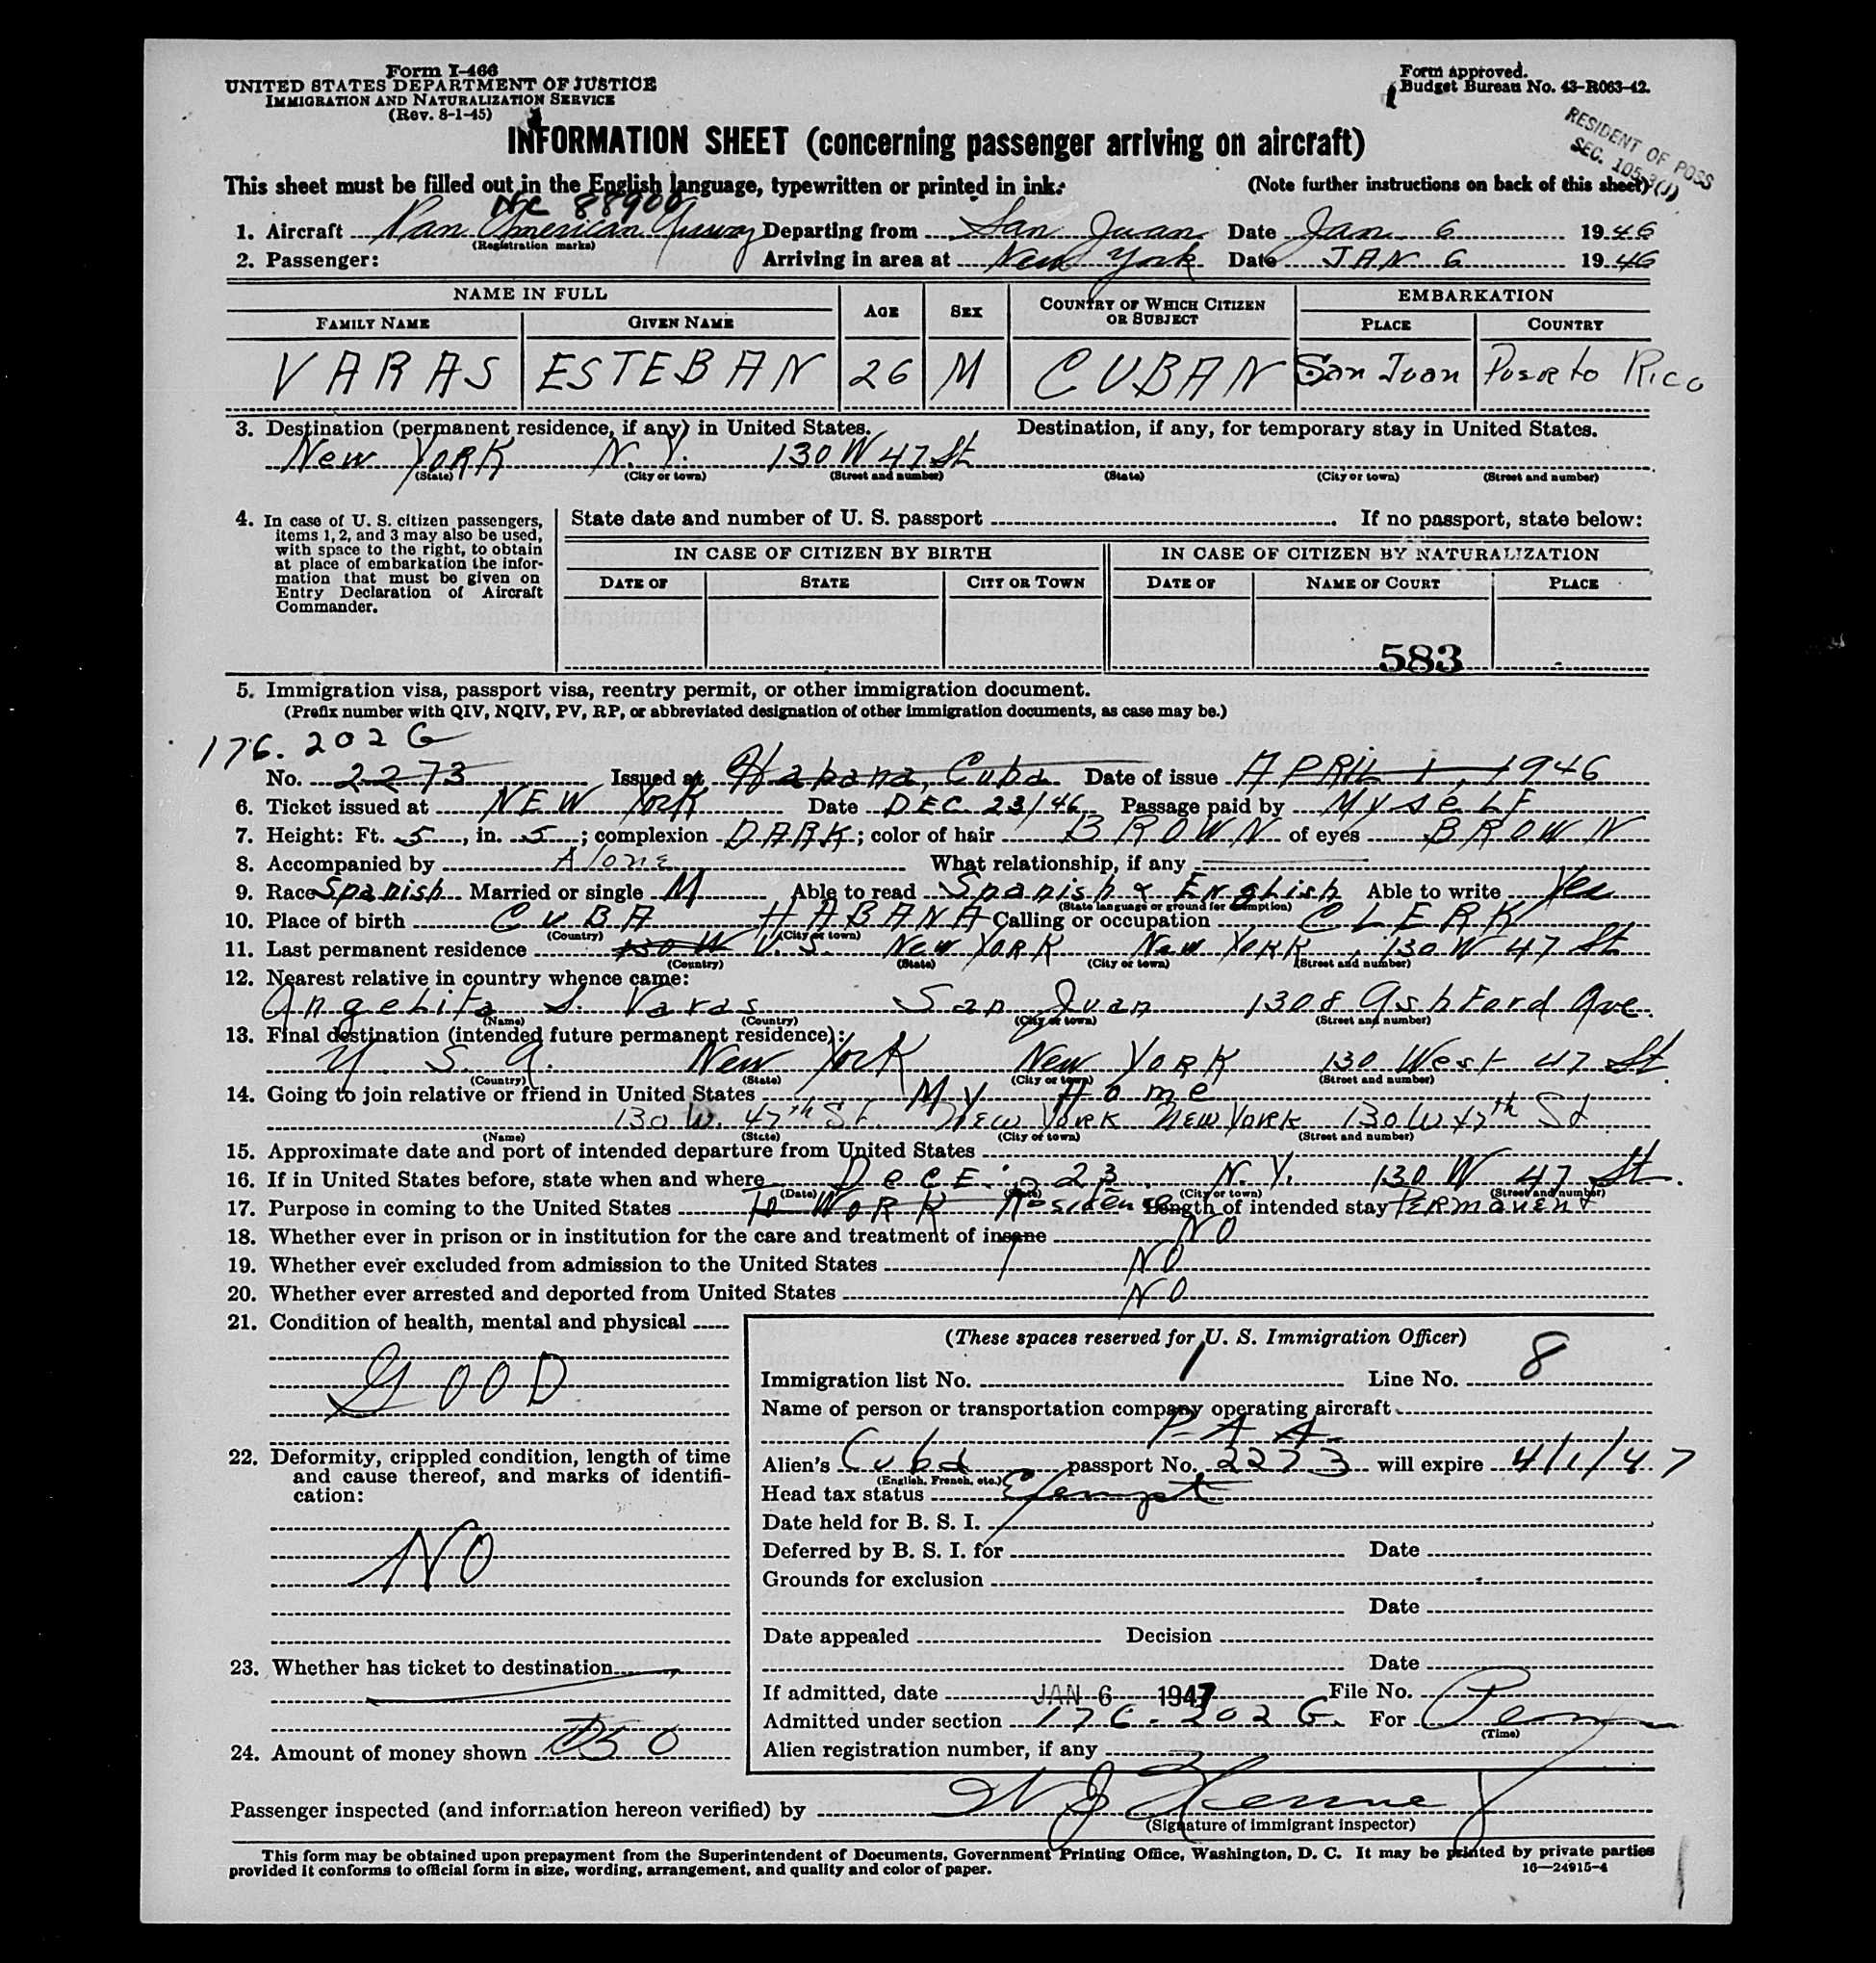 Form I-466
UNITED STATES DEPARTMENT OF JUSTICE
IMMIGRATION AND NATURALIZATION SERVICE
(Rev. 8-1-45)
Form approved.
Budget Bureau No. 43-R063-42.
RESIDENT OF POSS
SEC. 105.3(J)
INFORMATION SHEET (concerning passenger arriving on aircraft)
This sheet must be filled out in the English language, typewritten or printed in ink.
(Note further instructions on back of this sheet)
NC 88900
1. Aircraft Pan American Airway Departing from San Juan Date Jan 6 1946
(Registration marks)
2. Passenger: Arriving in area at New York Date JAN 6 1946
NAME IN FULL AGE SEX COUNTRY OF WHICH CITIZEN OR SUBJECT EMBARKATION
FAMILY NAME GIVEN NAME PLACE COUNTRY
VARAS ESTEBAN 26 M CUBAN San Juan Puerto Rico
3. Destination (permanent residence, if any) in United States. Destination, if any, for temporary stay in United States.
New YORK N.Y. 130 W 47 St
(State) (City or town) (Street and number) (State) (City or town) (Street and number)
4. In case of U. S. citizen passengers, items 1, 2, and 3 may also be used, with space to the right, to obtain at place of embarkation the information that must be given on Entry Declaration of Aircraft Commander.
State date and number of U. S. passport If no passport, state below:
IN CASE OF CITIZEN BY BIRTH IN CASE OF CITIZEN BY NATURALIZATION
DATE OF STATE CITY OR TOWN DATE OF NAME OF COURT PLACE
583
5. Immigration visa, passport visa, reentry permit, or other immigration document.
(Prefix number with QIV, NQIV, PV, RP, or abbreviated designation of other immigration documents, as case may be.)
176.202 G
No. 2273 Issued at Habana, Cuba Date of issue APRIL 1, 1946
6. Ticket issued at NEW YORK Date DEC 23/46 Passage paid by MyseLF
7. Height: Ft. 5, in. 5; complexion DARK; color of hair BROWN of eyes BROWN
8. Accompanied by Alone What relationship, if any
9. Race Spanish Married or single M Able to read Spanish & English Able to write Yes
(State language or ground for exemption)
10. Place of birth CUBA HABANA Calling or occupation CLERK
(Country) (City or town)
11. Last permanent residence 130 W U.S. New YORK New YORK, 130 W 47 St
(Country) (State) (City or town) (Street and number)
12. Nearest relative in country whence came:
Angelita S. Varas San Juan 1308 Ashford Ave.
(Name) (Country) (City or town) (Street and number)
13. Final destination (intended future permanent residence):
U. S. A. New York New YORK 130 West 47 St.
(Country) (State) (City or town) (Street and number)
14. Going to join relative or friend in United States My Home
130 W. 47th St. New York New York 130 W 47th St
(Name) (State) (City or town) (Street and number)
15. Approximate date and port of intended departure from United States
16. If in United States before, state when and where DecE. 23. N.Y. 130 W 47 St.
(Date) (State) (City or town) (Street and number)
17. Purpose in coming to the United States To WORK Residence Length of intended stay Permanent
18. Whether ever in prison or in institution for the care and treatment of insane NO
19. Whether ever excluded from admission to the United States NO
20. Whether ever arrested and deported from United States NO
21. Condition of health, mental and physical
GOOD
22. Deformity, crippled condition, length of time and cause thereof, and marks of identification:
NO
23. Whether has ticket to destination
24. Amount of money shown $50
(These spaces reserved for U. S. Immigration Officer)
Immigration list No. 1 Line No. 8
Name of person or transportation company operating aircraft
P A A
Alien's Cuba passport No. 2273 will expire 4/1/47
(English, French, etc.)
Head tax status Exempt
Date held for B. S. I.
Deferred by B. S. I. for Date
Grounds for exclusion
Date
Date appealed Decision
Date
If admitted, date JAN 6 1947 File No.
Admitted under section 176.202 G. For Perm
(Time)
Alien registration number, if any
Passenger inspected (and information hereon verified) by
(Signature of immigrant inspector)
This form may be obtained upon prepayment from the Superintendent of Documents, Government Printing Office, Washington, D. C. It may be printed by private parties
provided it conforms to official form in size, wording, arrangement, and quality and color of paper.
16—24915-4